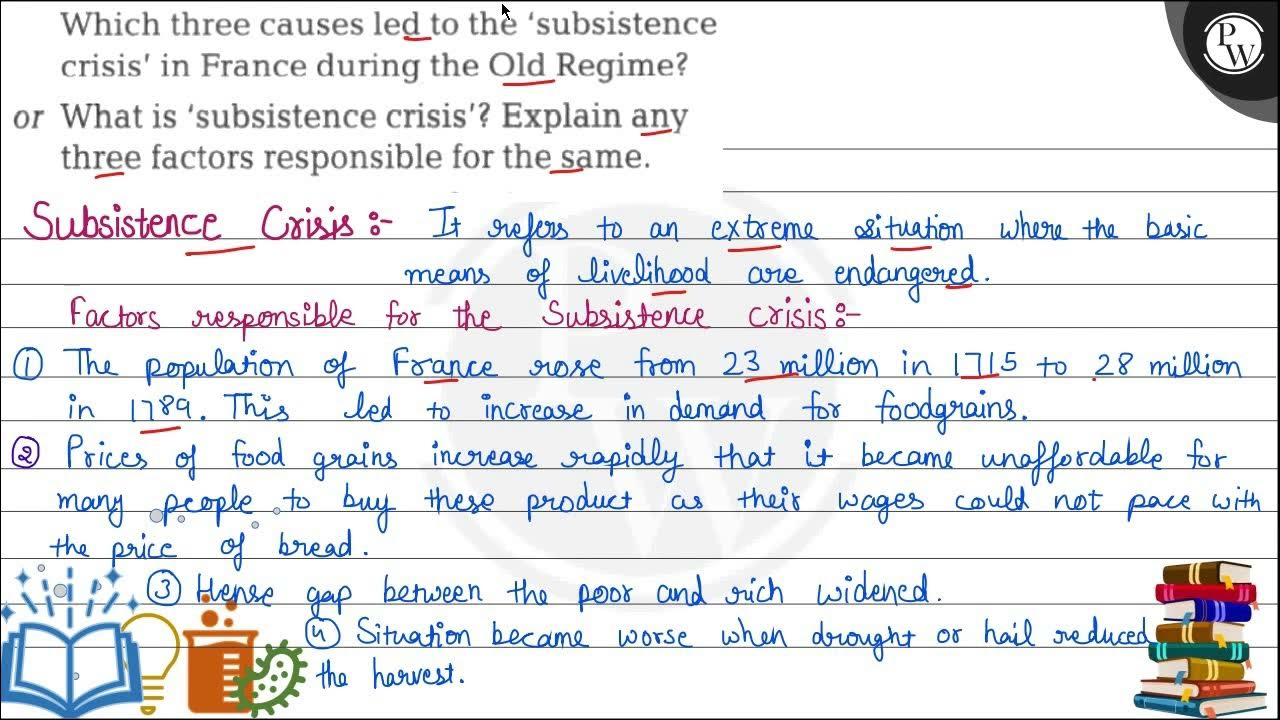 Which three causes led to the ‘subsistence
crisis’ in France during the Old Regime?
or What is ‘subsistence crisis’? Explain any
three factors responsible for the same.
Subsistence Crisis :- It refers to an extreme situation where the basic
means of livelihood are endangered.
Factors responsible for the Subsistence crisis :-
① The population of France rose from 23 million in 1715 to 28 million
in 1789. This led to increase in demand for foodgrains.
② Prices of food grains increase rapidly that it became unaffordable for
many people to buy these product as their wages could not pace with
the price of bread.
③ Hense gap between the poor and rich widened.
④ Situation became worse when drought or hail reduced
the harvest.
PW